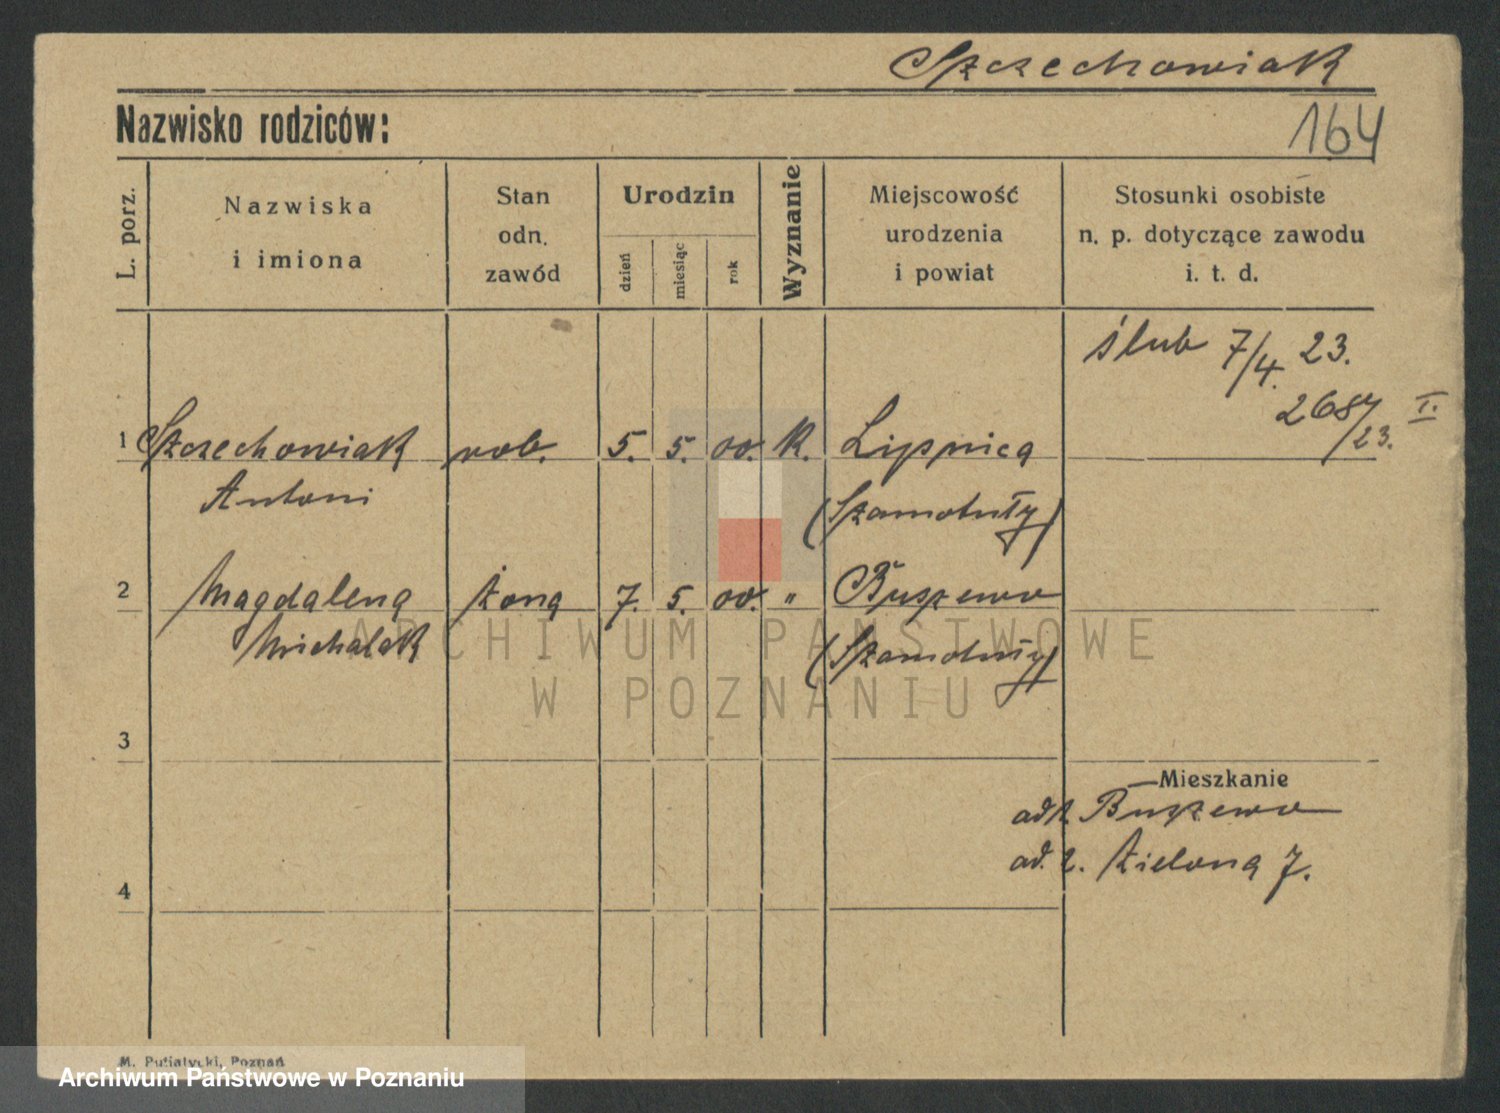 Szczechowiak
Nazwisko rodziców:
164
L. porz.
Nazwiska
i imiona
Stan
odn.
zawód
Urodzin
dzień
miesiąc
rok
Wyznanie
Miejscowość
urodzenia
i powiat
Stosunki osobiste
n. p. dotyczące zawodu
i. t. d.
ślub 7/4. 23.
I.
/23.
1 Szczechowiak rob. 5. 5. 00. K. Lipnica
Antoni (Szamotuły)
2 Magdalena żona 7. 5. 00. " Buszewo
Michalak (Szamotuły)
3
Mieszkanie
ad 1. Buszewo
ad. 2. Zielona 7.
4
M. Putiatycki, Poznań
ARCHIWUM PAŃSTWOWE
W POZNANIU
Archiwum Państwowe w Poznaniu